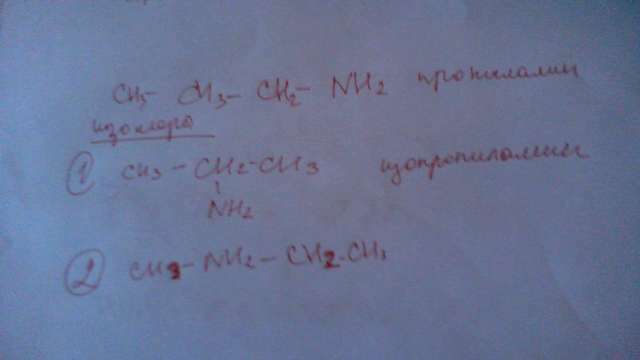 CH3- CH3- CH2- NH2 пропиламин
изомеры
1 CH3 - CH2-CH3 изопропиламин
NH2
2 CH3- NH2- CH2-CH3